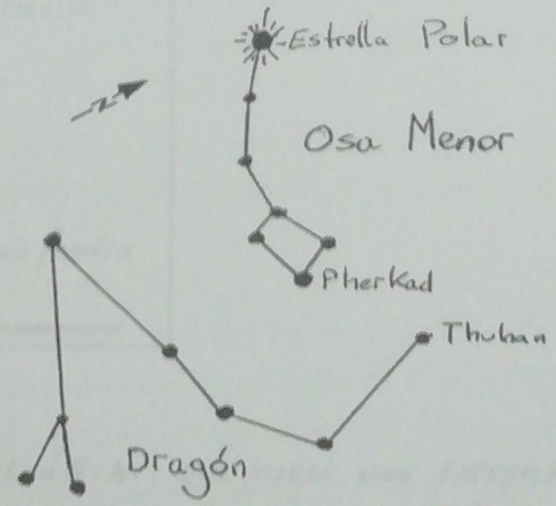 Estrella Polar
Osa Menor
Pherkad
Thuban
Dragón
N